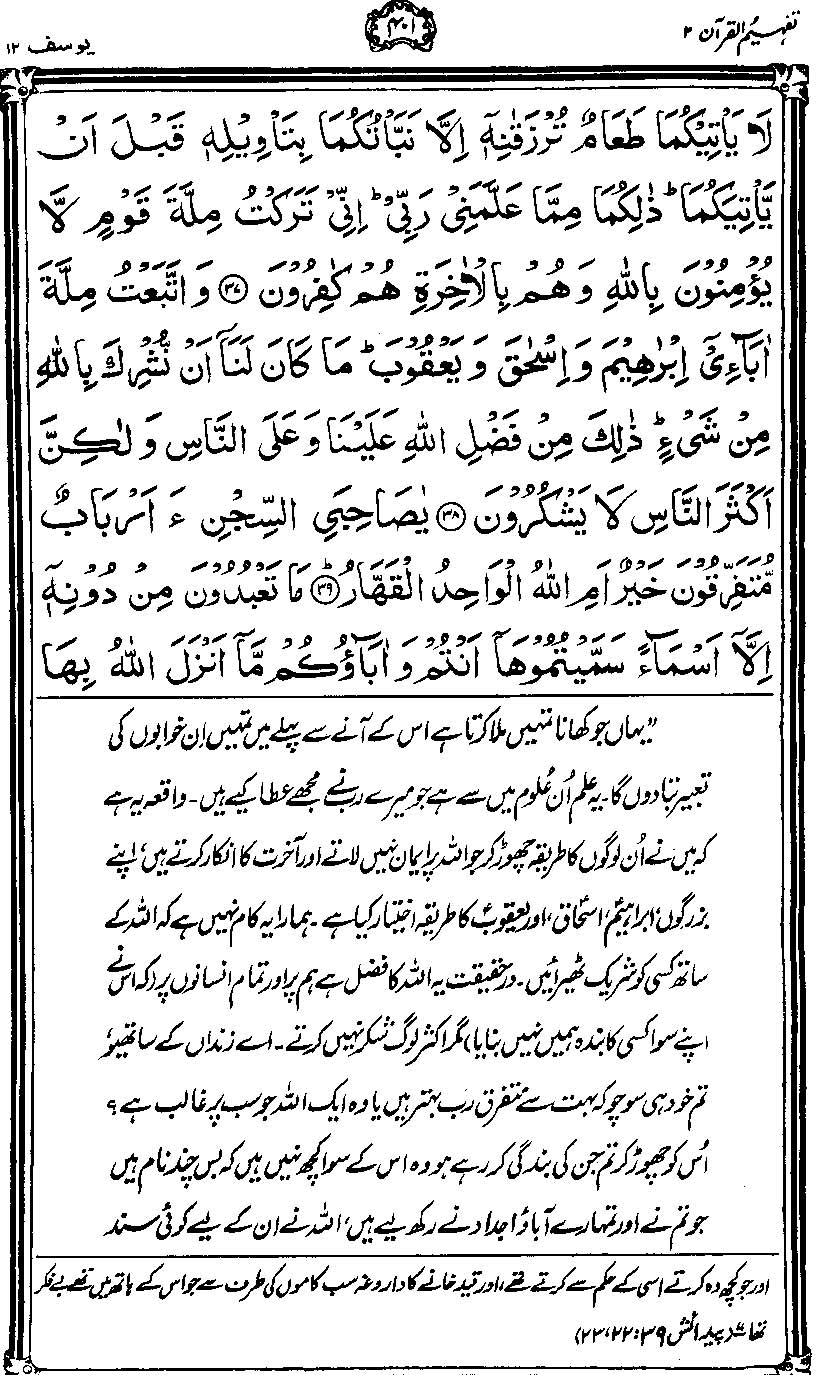 تفہیم القرآن ۲
۴۰۱
یوسف ۱۲
لَا يَاْتِيْكُمَا طَعَامٌ تُرْزَقٰنِهٖٓ اِلَّا نَبَّاْتُكُمَا بِتَاْوِيْلِهٖ قَبْلَ اَنْ
يَّاْتِيَكُمَا ؕ ذٰلِكُمَا مِمَّا عَلَّمَنِيْ رَبِّيْ ؕ اِنِّيْ تَرَكْتُ مِلَّةَ قَوْمٍ لَّا
يُؤْمِنُوْنَ بِاللّٰهِ وَهُمْ بِالْاٰخِرَةِ هُمْ كٰفِرُوْنَ ﴿۳۷﴾ وَاتَّبَعْتُ مِلَّةَ
اٰبَآءِيْٓ اِبْرٰهِيْمَ وَاِسْحٰقَ وَيَعْقُوْبَ ؕ مَا كَانَ لَنَآ اَنْ نُّشْرِكَ بِاللّٰهِ
مِنْ شَيْءٍ ؕ ذٰلِكَ مِنْ فَضْلِ اللّٰهِ عَلَيْنَا وَعَلَى النَّاسِ وَلٰكِنَّ
اَكْثَرَ النَّاسِ لَا يَشْكُرُوْنَ ﴿۳۸﴾ يٰصَاحِبَيِ السِّجْنِ ءَاَرْبَابٌ
مُّتَفَرِّقُوْنَ خَيْرٌ اَمِ اللّٰهُ الْوَاحِدُ الْقَهَّارُ ؕ ﴿۳۹﴾ مَا تَعْبُدُوْنَ مِنْ دُوْنِهٖٓ
اِلَّآ اَسْمَآءً سَمَّيْتُمُوْهَآ اَنْتُمْ وَاٰبَآؤُكُمْ مَّآ اَنْزَلَ اللّٰهُ بِهَا
”یہاں جو کھانا تمہیں ملا کرتا ہے اس کے آنے سے پہلے میں تمہیں اِن خوابوں کی
تعبیر بتا دوں گا۔ یہ علم اُن عُلوم میں سے ہے جو میرے رب نے مجھے عطا کیے ہیں۔ واقعہ یہ ہے
کہ میں نے اُن لوگوں کا طریقہ چھوڑ کر جو اللہ پر ایمان نہیں لاتے اور آخرت کا انکار کرتے ہیں، اپنے
بزرگوں، ابراہیمؑ، اسحاقؑ، اور یعقوبؑ کا طریقہ اختیار کیا ہے۔ ہمارا یہ کام نہیں ہے کہ اللہ کے
ساتھ کسی کو شریک ٹھیرائیں۔ درحقیقت یہ اللہ کا فضل ہے ہم پر اور تمام انسانوں پر (کہ اس نے
اپنے سوا کسی کا بندہ ہمیں نہیں بنایا) مگر اکثر لوگ شکر نہیں کرتے۔ اے زنداں کے ساتھیو،
تم خود ہی سوچو کہ بہت سے متفرق رب بہتر ہیں یا وہ ایک اللہ جو سب پر غالب ہے؟
اُس کو چھوڑ کر تم جن کی بندگی کر رہے ہو وہ اس کے سوا کچھ نہیں ہیں کہ بس چند نام ہیں
جو تم نے اور تمہارے آباؤ اجداد نے رکھ لیے ہیں، اللہ نے ان کے لیے کوئی سند
اور جو کچھ وہ کرتے اسی کے حکم سے کرتے تھے، اور قید خانے کا داروغہ سب کاموں کی طرف سے جو اس کے ہاتھ میں تھے بے فکر
تھا“ (پیدائش ۳۹: ۲۲، ۲۳)